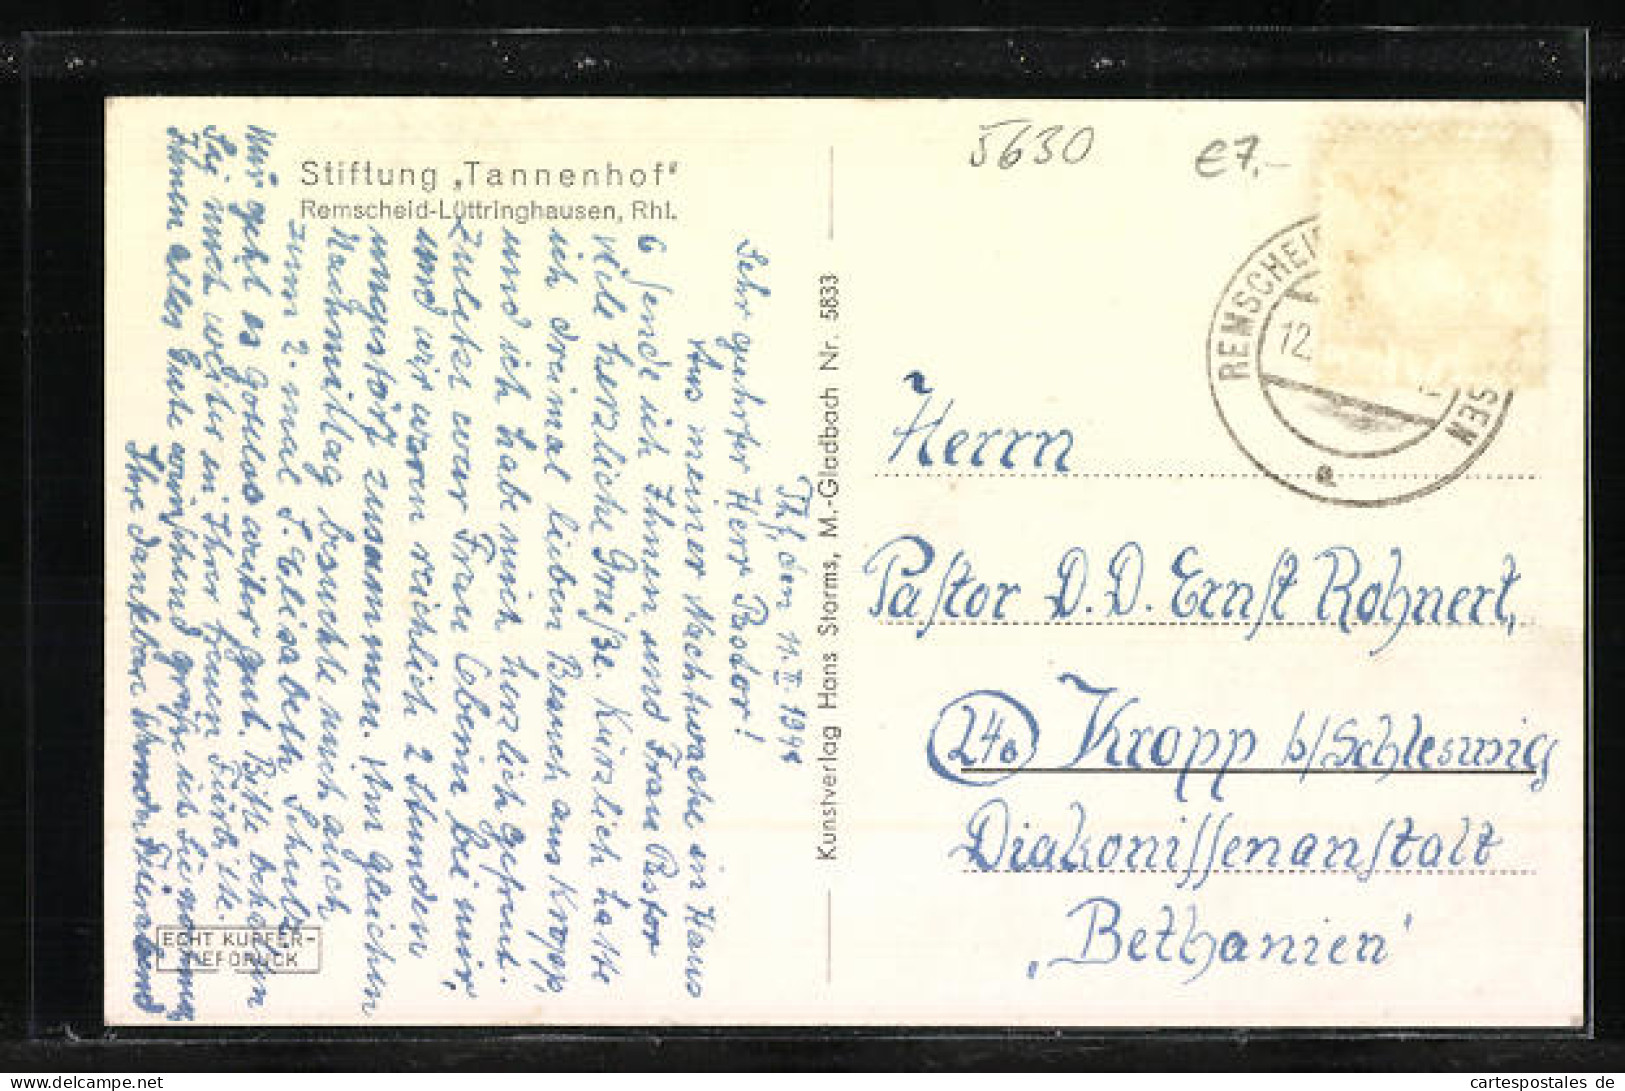 Stiftung „Tannenhof"
Remscheid-Lüttringhausen, Rhl.
5630
€7,-
REMSCHEI SEN
12.
a
Thf, den 11.II.1944
Sehr geehrter Herr Pastor!
Aus meiner Nachtwache in Haus
6 sende ich Ihnen und Frau Pastor
viele herzliche Grüße. Kürzlich hatte
ich dreimal lieben Besuch aus Kropp,
und ich habe mich herzlich gefreut.
Zuletzt war Frau bei mir,
und wir waren reichlich 2 Stunden
ungestört zusammen. Am gleichen
Nachmittag besuchte mich auch
zum 2. mal S. Elisabeth
Mir geht es weiter gut. Bitte
Sie mich weiter in Ihrer treuen
Ihnen alles Gute wünschend grüße ich Sie
Ihre dankbare
ECHT KUPFER-
TIEFDRUCK
Kunstverlag Hans Storms, M.-Gladbach Nr. 5833
Herrn
Pastor D. D. Ernst Rohnert,
24b Kropp b/Schleswig
Diakonissenanstalt
„Bethanien'
cartespostales.de